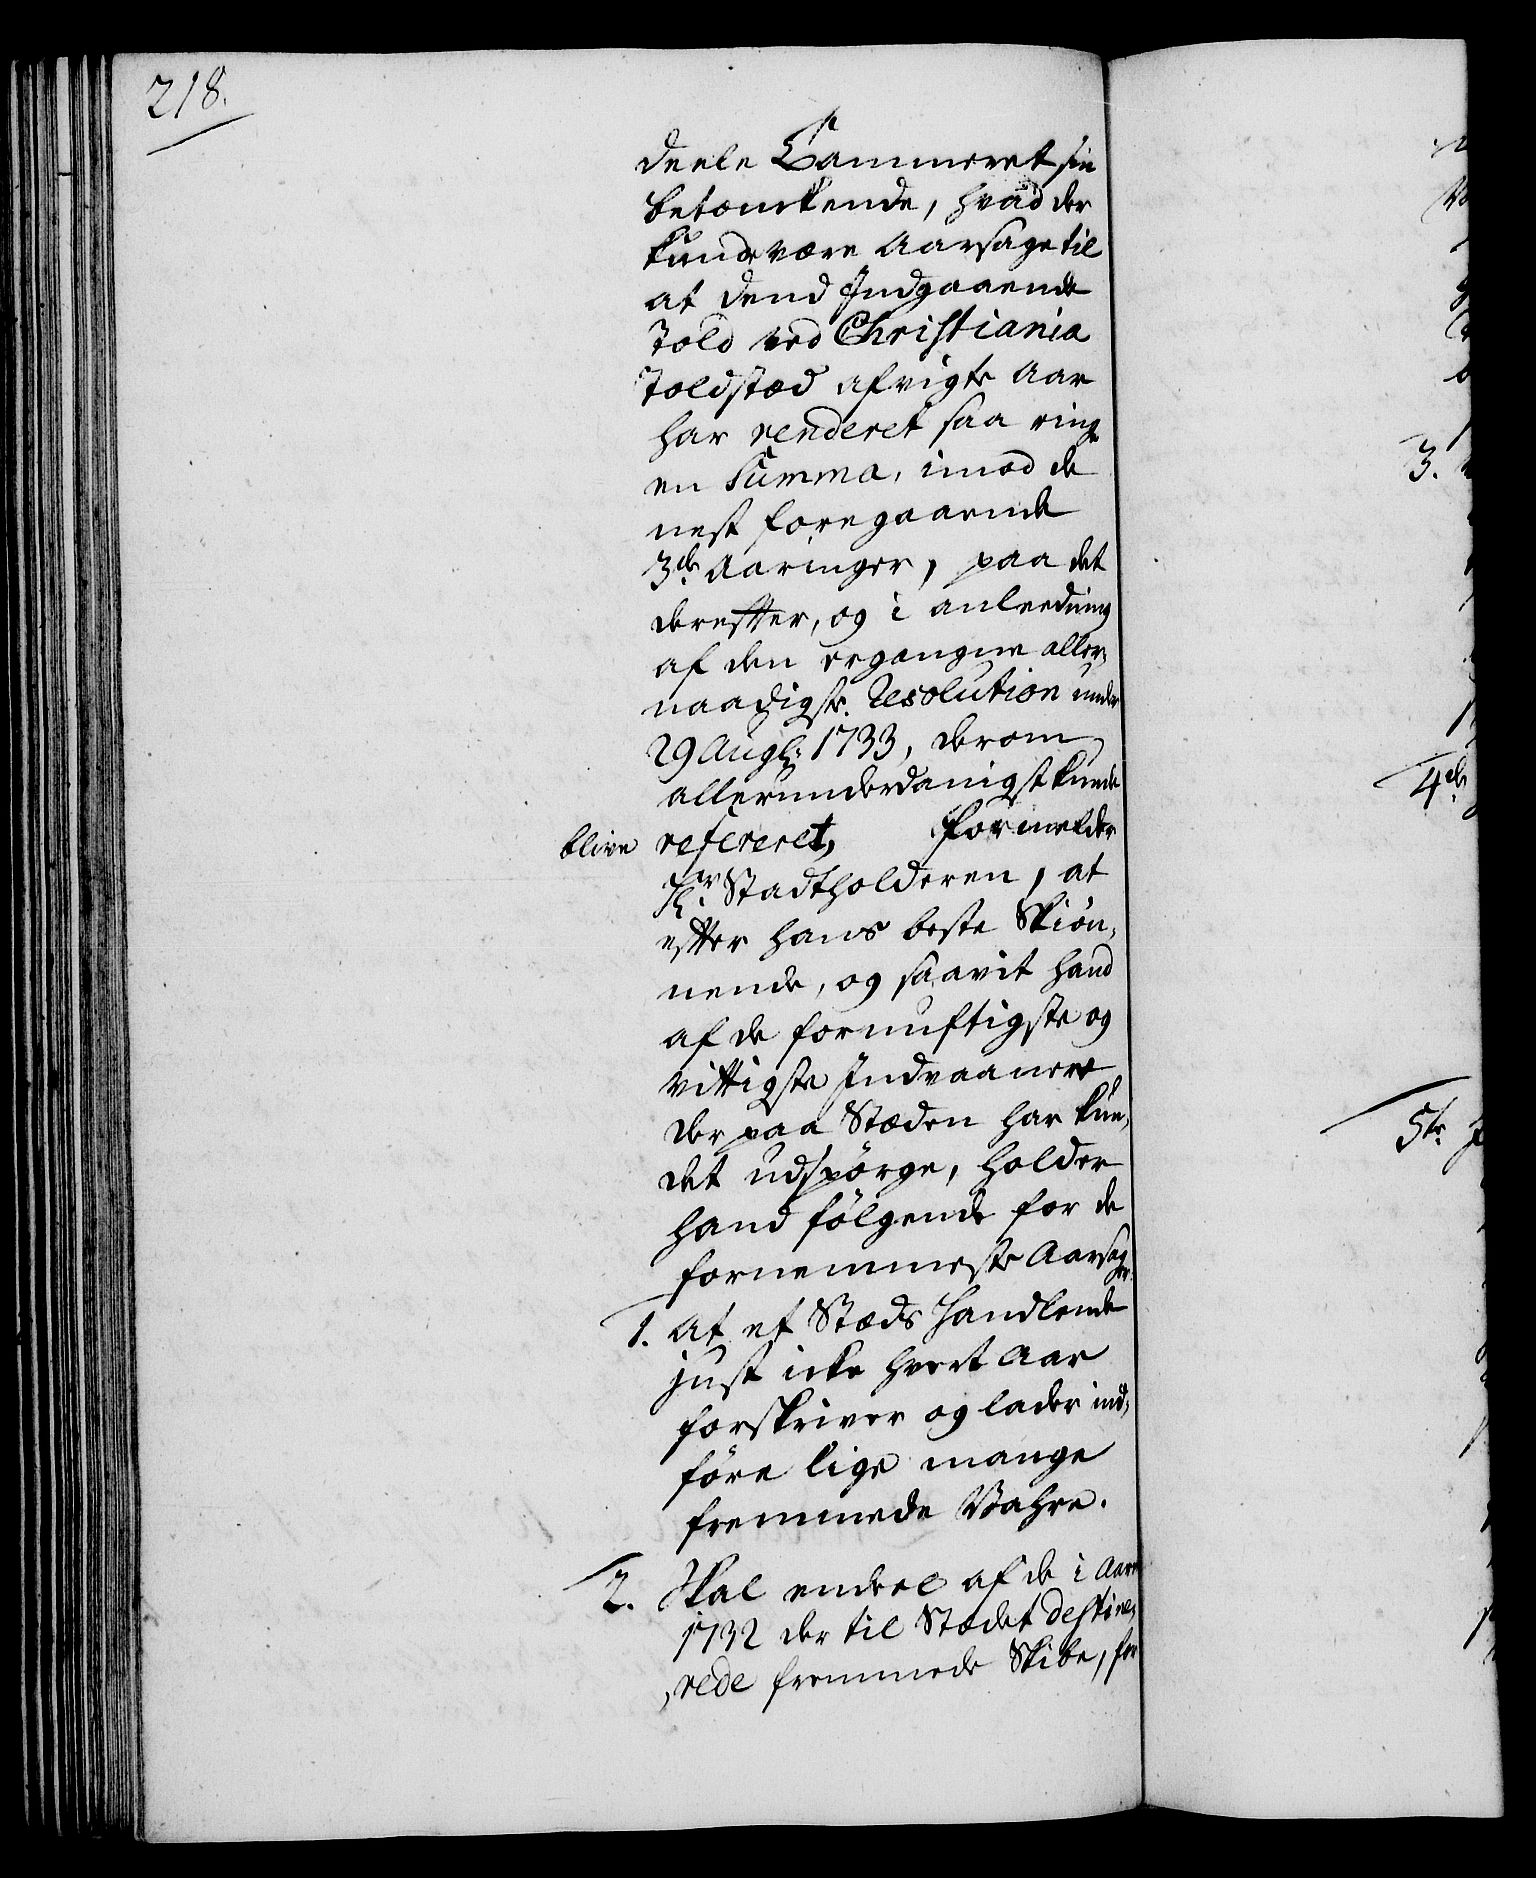 218.
deele Cammeret sin
betænkende, hvad der
kunde være Aarsage til
at dend Indgaaende
Told ved Christiania
Toldstæd afvigte Aar
har renderet saa ringe
en Summa, imod de
nest foregaaende
3de Aaringer, paa det
derefter, og i anleedning
af den ergangne aller,
naadigste Resolution under
29 Aug: 1733, derom
allerunderdanigst kunde
blive refereret, formelder
Hr. Stadtholderen, at
efter hans beste Skiøn,
nende, og saavit hand
af de fornuftigste og
vittigste Indvaanere
der paa Stæden har kun,
det udspörge, holder
hand fölgende for de
fornemmeste Aarsager.
1. At et Stæds Handlende
just icke hvert Aar
forskriver og lader ind,
före lige mange
fremmede Vahre.
2. Skal endeel af de i Aaret
1732 der til Stædet destine,
,rede fremmede Skibe, for
3.
4de
5te